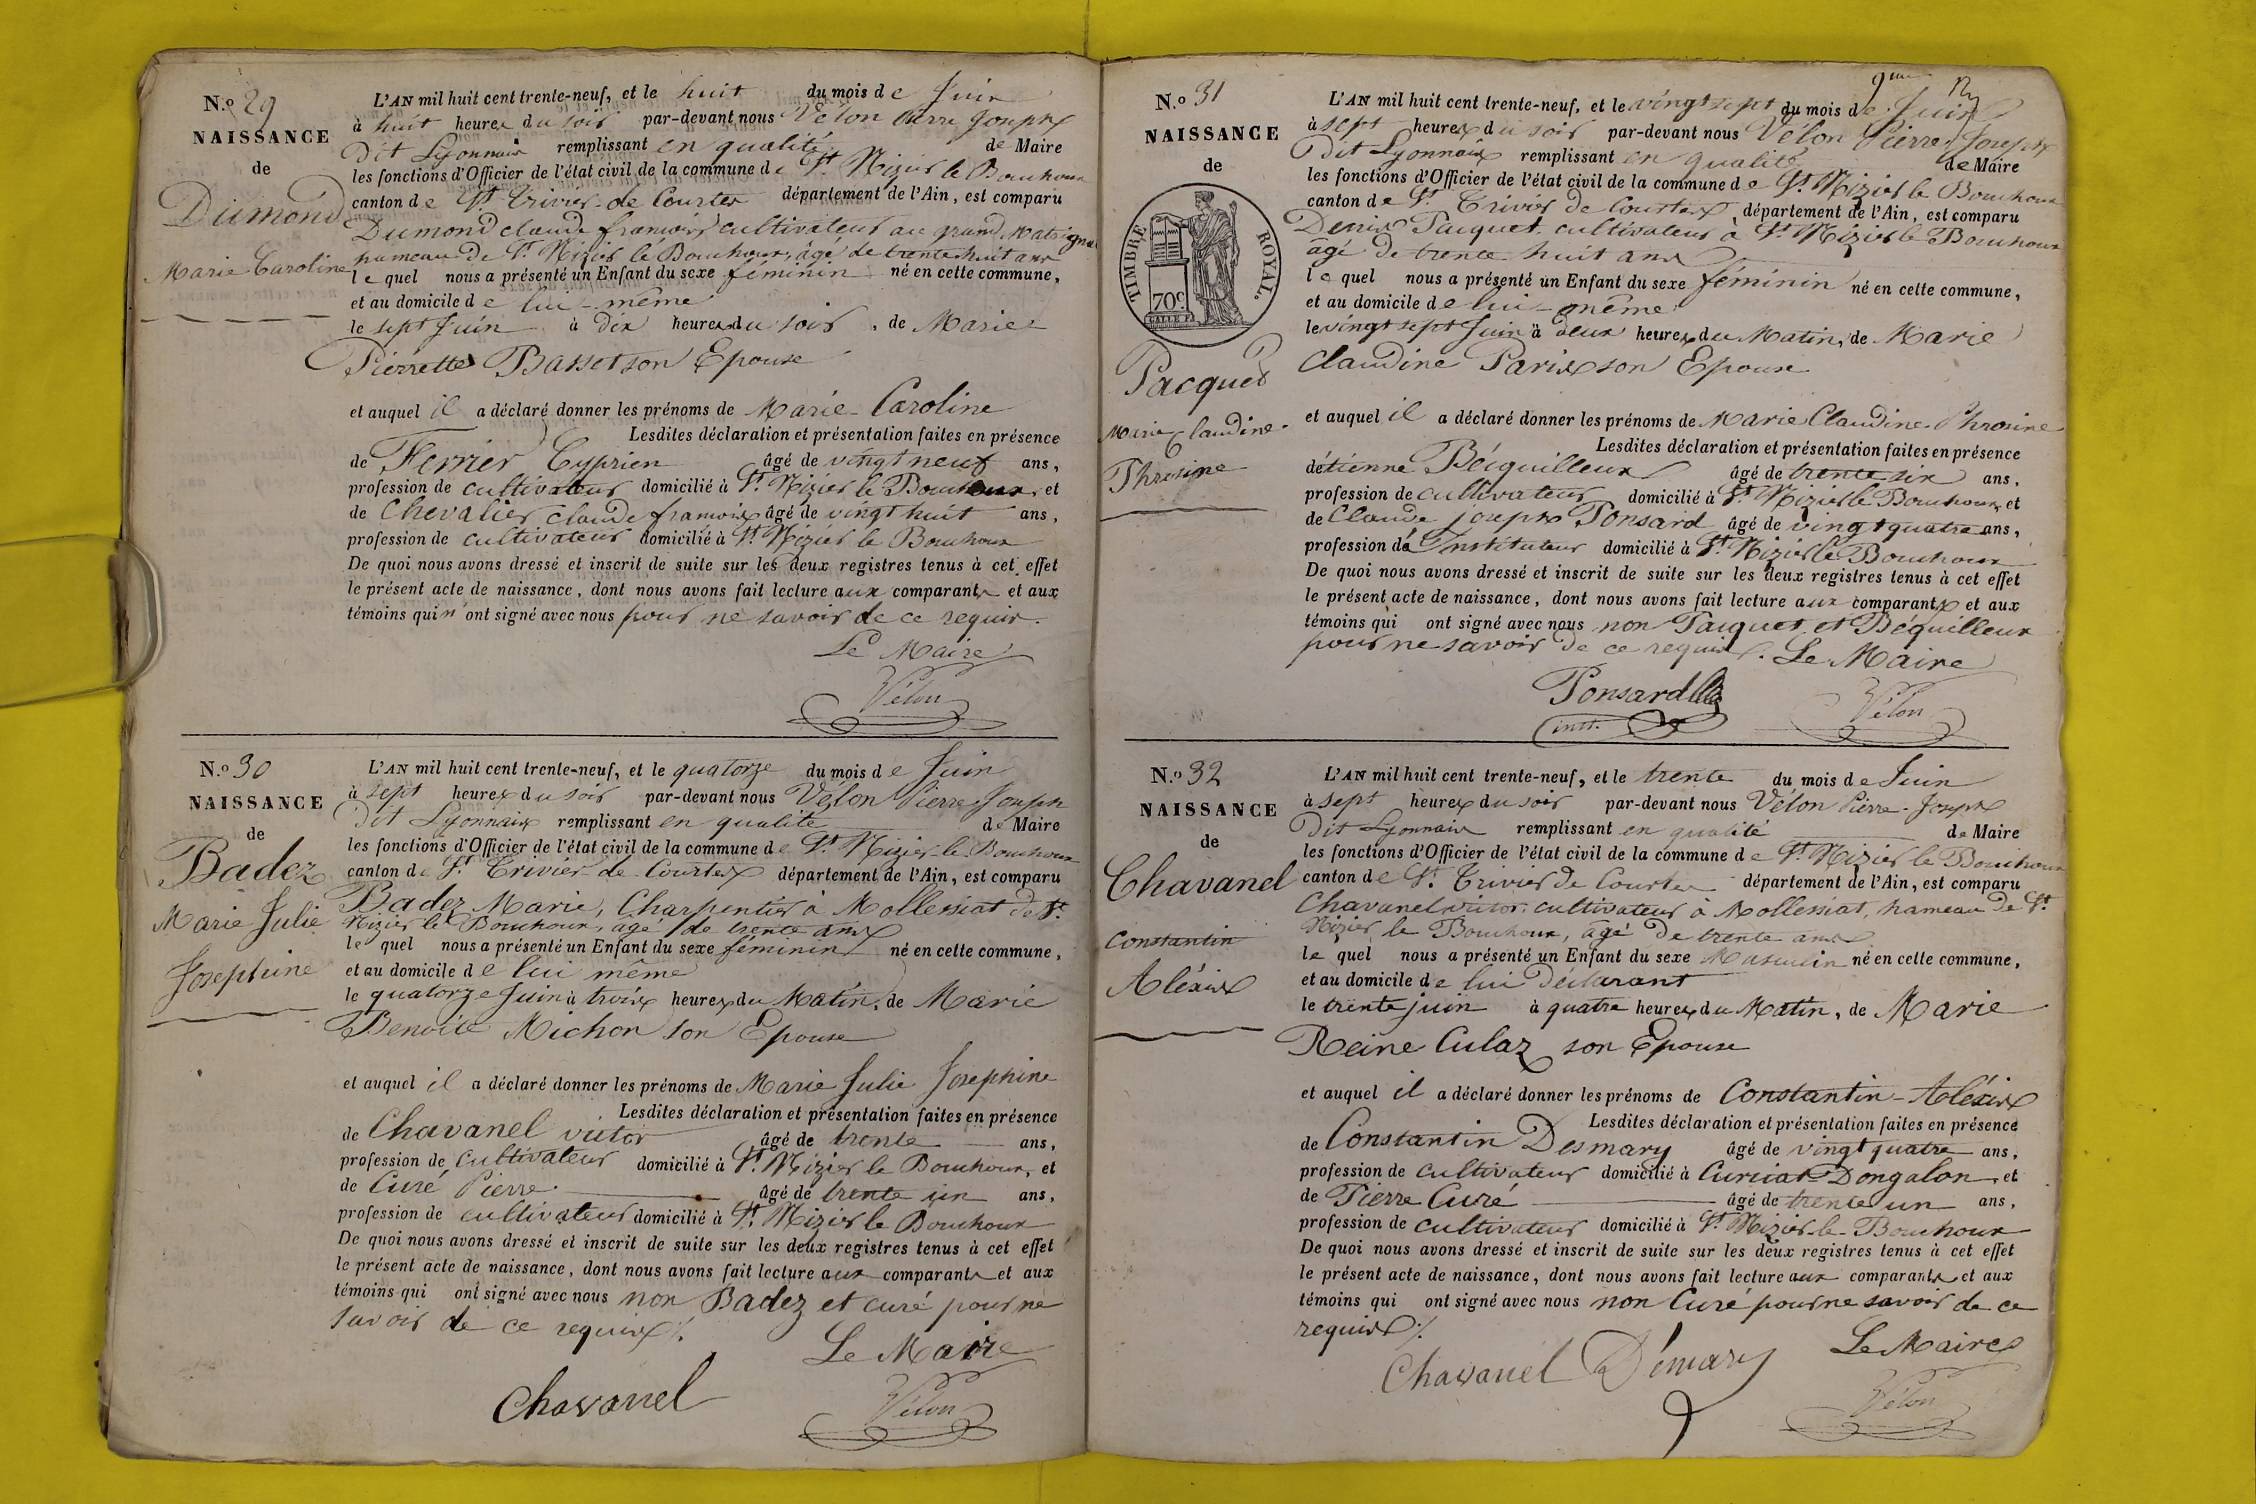 N.º 29
NAISSANCE
de
Dumond
Marie Caroline
L'AN mil huit cent trente-neuf, et le huit du mois de Juin
à huit heures du soir par-devant nous Vélon Pierre Joseph
Dit Lyonnais remplissant en qualité de Maire
les fonctions d'Officier de l'état civil de la commune de St. Nizier le Bouchoux
canton de St. Trivier de Courtes département de l'Ain, est comparu
Dumond claude francois cultivateur au grand Matignat
hameau de St. Nizier le Bouchoux, âgé de trente huit ans
lequel nous a présenté un Enfant du sexe féminin né en cette commune,
et au domicile de lui-même
le sept Juin à dix heures du soir, de Marie
Pierrette Basset son Epouse
et auquel il a déclaré donner les prénoms de Marie-Caroline
Lesdites déclaration et présentation faites en présence
de Ferrier Cyprien âgé de vingt neuf ans,
profession de cultivateur domicilié à St. Nizier le Bouchoux, et
de Chevalier claude francois âgé de vingt huit ans,
profession de cultivateur domicilié à St. Nizier le Bouchoux
De quoi nous avons dressé et inscrit de suite sur les deux registres tenus à cet effet
le présent acte de naissance, dont nous avons fait lecture aux comparants et aux
témoins qui n'ont signé avec nous pour ne savoir de ce requis.
Le Maire
Vélon
N.º 30
NAISSANCE
de
Badez
Marie Julie
Josephine
L'AN mil huit cent trente-neuf, et le quatorze du mois de Juin
à sept heures du soir par-devant nous Vélon Pierre Joseph
Dit Lyonnais remplissant en qualité de Maire
les fonctions d'Officier de l'état civil de la commune de St. Nizier le Bouchoux
canton de St. Trivier de Courtes département de l'Ain, est comparu
Badez Marie, Charpentier à Mollessiat de St.
Nizier le Bouchoux, âgé de trente ans
lequel nous a présenté un Enfant du sexe féminin né en cette commune,
et au domicile de lui même
le quatorze Juin à trois heures du Matin, de Marie
Benoite Michon son Epouse
et auquel il a déclaré donner les prénoms de Marie Julie Josephine
Lesdites déclaration et présentation faites en présence
de Chavanel victor âgé de trente ans,
profession de cultivateur domicilié à St. Nizier le Bouchoux, et
de Curé Pierre âgé de trente un ans,
profession de cultivateur domicilié à St. Nizier le Bouchoux
De quoi nous avons dressé et inscrit de suite sur les deux registres tenus à cet effet
le présent acte de naissance, dont nous avons fait lecture aux comparants et aux
témoins qui ont signé avec nous non Badez et curé pour ne
savoir de ce requis ./.
Le Maire
Chavanel Vélon
9me
N.º 31
NAISSANCE
de
TIMBRE ROYAL.
70c
Pacquet
Marie Claudine
Phrosine
L'AN mil huit cent trente-neuf, et le vingt sept du mois de Juin
à sept heures du soir par-devant nous Vélon Pierre Joseph
Dit Lyonnais remplissant en qualité de Maire
les fonctions d'Officier de l'état civil de la commune de St. Nizier le Bouchoux
canton de St. Trivier de Courtes, département de l'Ain, est comparu
Denis Pacquet cultivateur à St. Nizier le Bouchoux
âgé de trente huit ans
lequel nous a présenté un Enfant du sexe féminin né en cette commune,
et au domicile de lui-même
le vingt sept Juin à deux heures du Matin, de Marie
Claudine Paris son Epouse
et auquel il a déclaré donner les prénoms de Marie Claudine Phrosine
Lesdites déclaration et présentation faites en présence
détienne Béquilleux âgé de trente six ans,
profession de cultivateur domicilié à St. Nizier le Bouchoux, et
de Claude joseph Ponsard âgé de vingt quatre ans,
profession de Instituteur domicilié à St. Nizier le Bouchoux
De quoi nous avons dressé et inscrit de suite sur les deux registres tenus à cet effet
le présent acte de naissance, dont nous avons fait lecture aux comparants et aux
témoins qui ont signé avec nous non Pacquet et Béquilleux
pour ne savoir de ce requis. Le Maire
Ponsard Vélon
inst.
N.º 32
NAISSANCE
de
Chavanel
Constantin
Aléxis
L'AN mil huit cent trente-neuf, et le trente du mois de Juin
à sept heures du soir par-devant nous Vélon Pierre-Joseph
Dit Lyonnais remplissant en qualité de Maire
les fonctions d'Officier de l'état civil de la commune de St. Nizier le Bouchoux
canton de St. Trivier de Courtes département de l'Ain, est comparu
Chavanel victor cultivateur à Mollessiat, hameau de St.
Nizier le Bouchoux, âgé de trente ans
lequel nous a présenté un Enfant du sexe Masculin né en cette commune,
et au domicile de lui Déclarant
le trente juin à quatre heures du Matin, de Marie
Reine Culaz son Epouse
et auquel il a déclaré donner les prénoms de Constantin-Aléxis
Lesdites déclaration et présentation faites en présence
de Constantin Desmary âgé de vingt quatre ans,
profession de cultivateur domicilié à Curciat-Dongalon, et
de Pierre Curé âgé de trente un ans,
profession de cultivateur domicilié à St. Nizier-le-Bouchoux
De quoi nous avons dressé et inscrit de suite sur les deux registres tenus à cet effet
le présent acte de naissance, dont nous avons fait lecture aux comparants et aux
témoins qui ont signé avec nous non Curé pour ne savoir de ce
requis ./. Le Maire
Chavanel Démary
Vélon